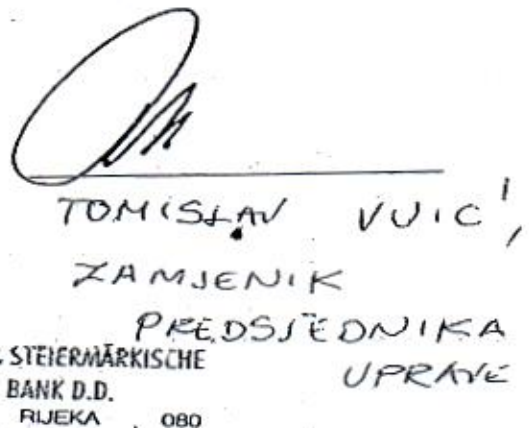 TOMISLAV VUIĆ,
ZAMJENIK
PREDSJEDNIKA
UPRAVE
STEIERMÄRKISCHE
BANK D.D.
RIJEKA 080